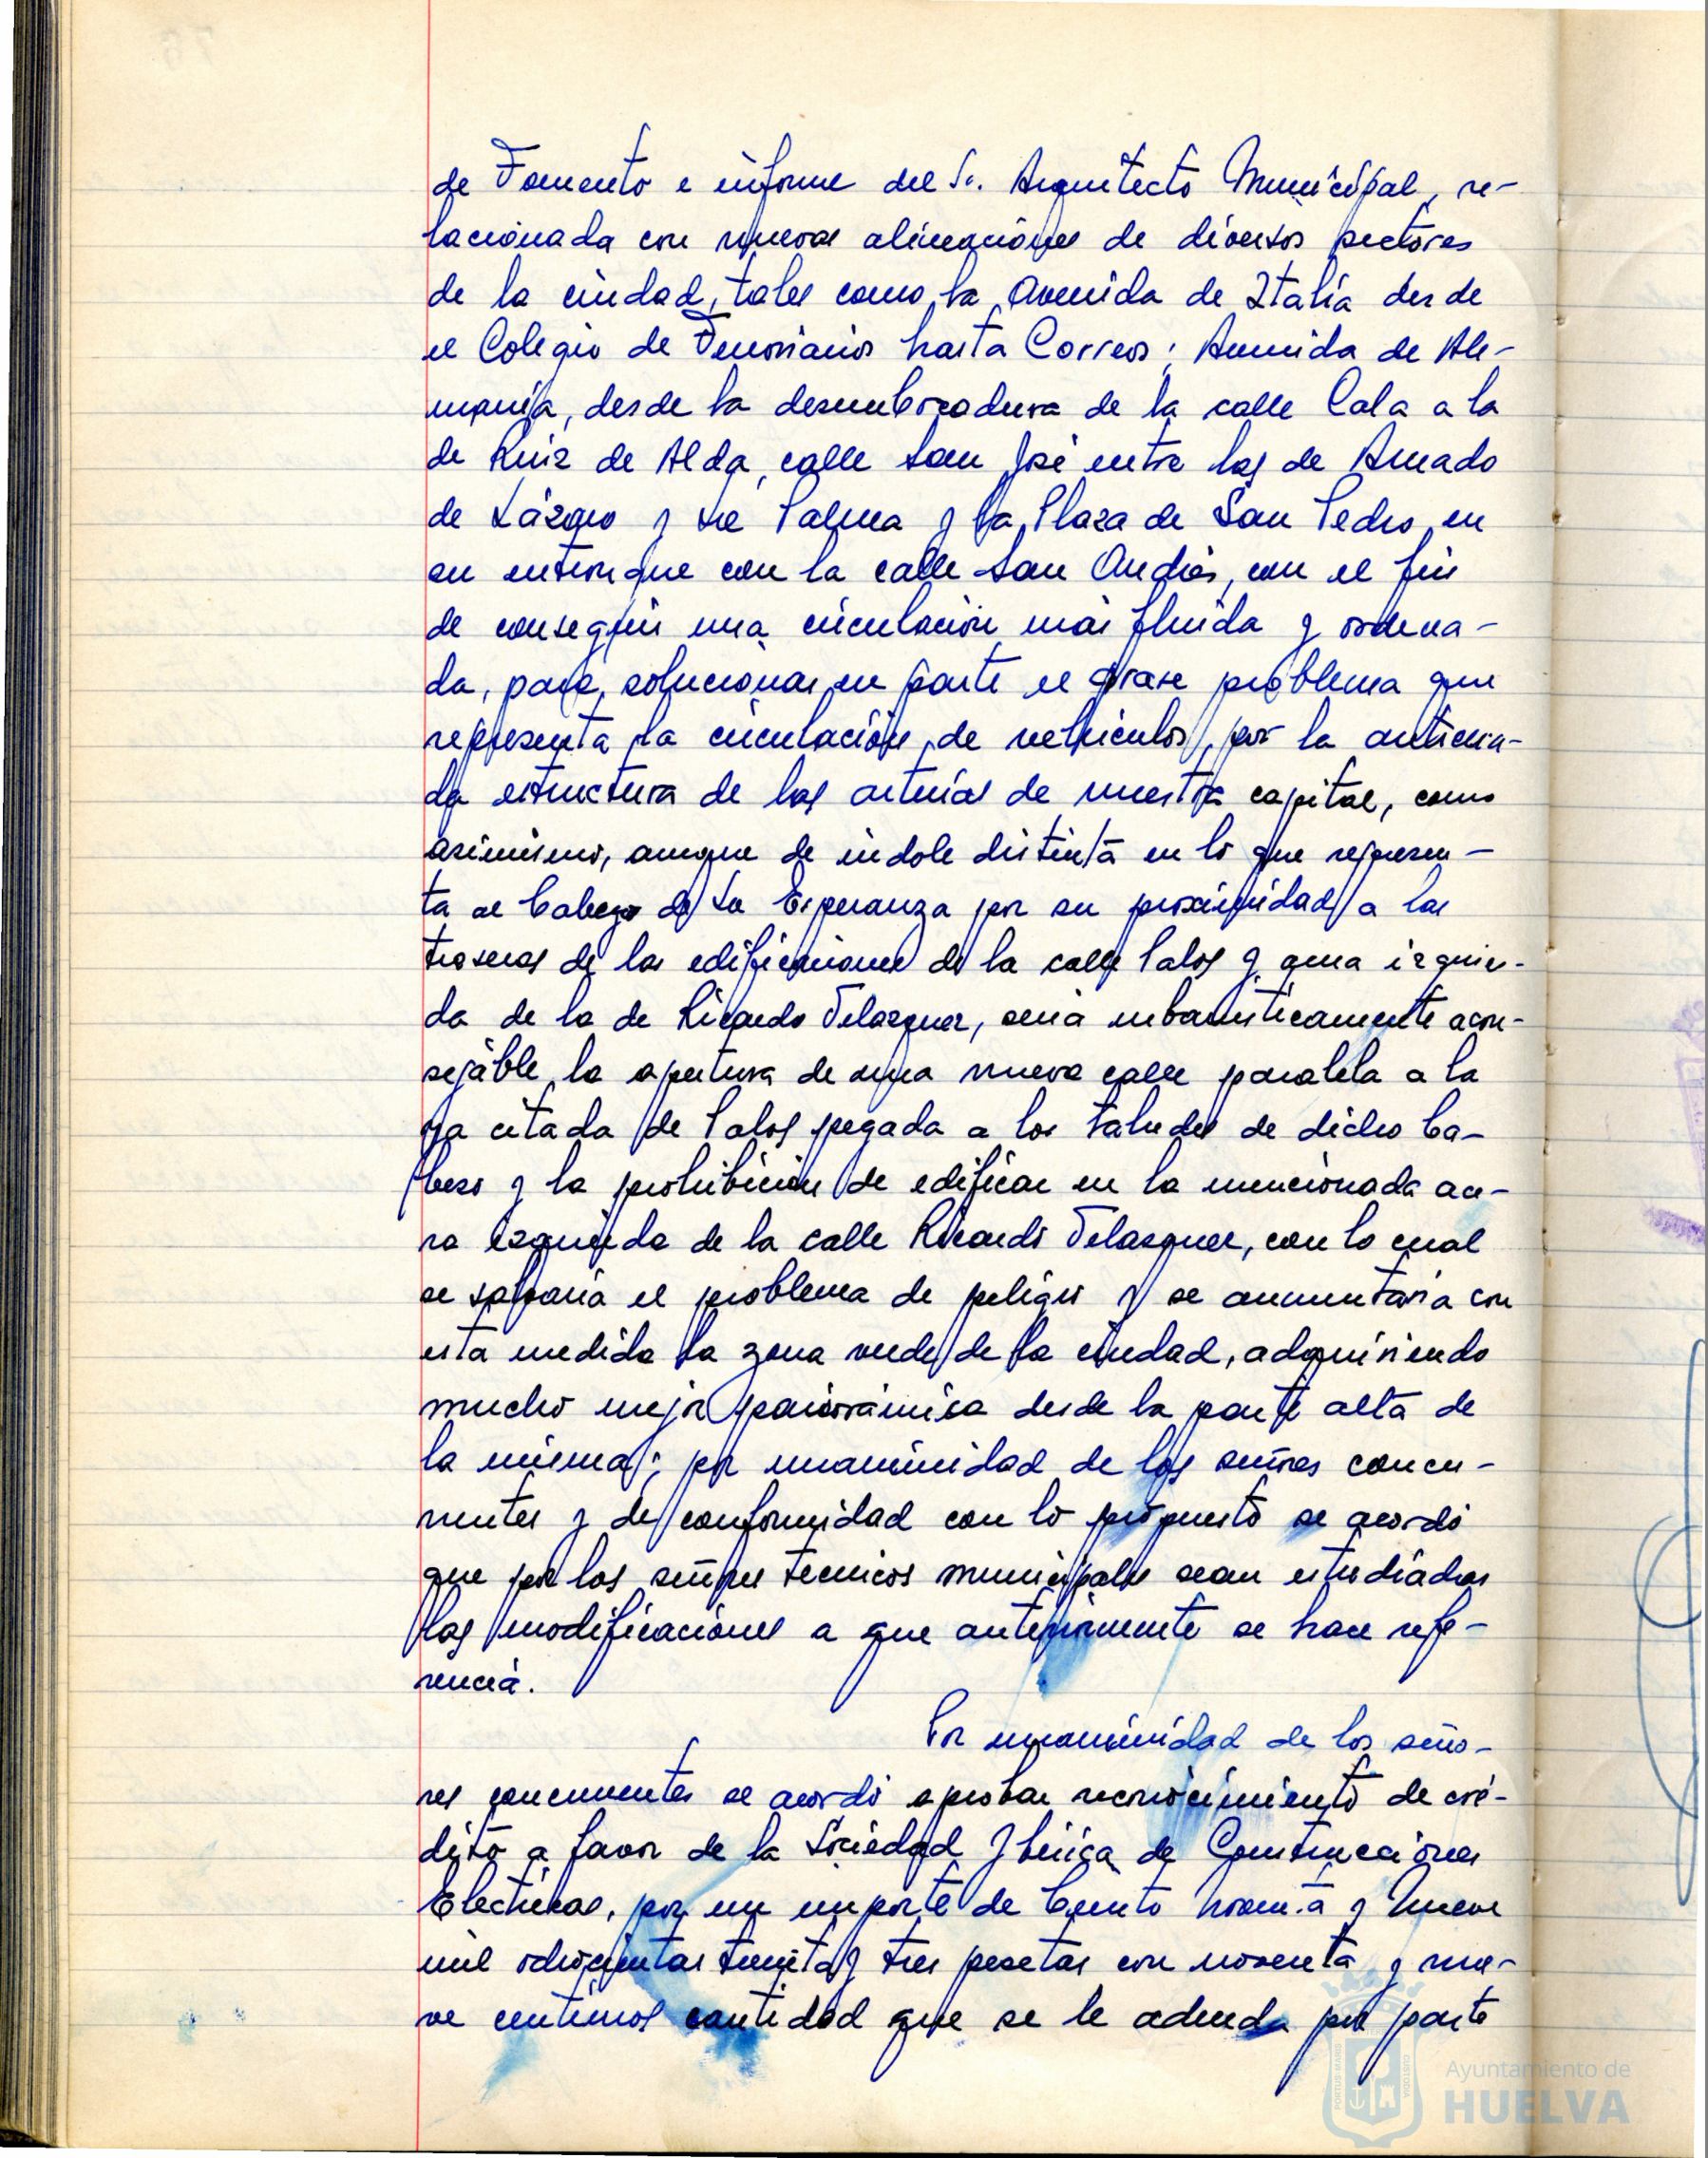 de Fomento e informe del Sr. Arquitecto Municipal, re-
lacionada con nuevas alineaciones de diversos sectores
de la ciudad, tales como la Avenida de Italia desde
el Colegio de Ferroviarios hasta Correos; Avenida de Ale-
mania, desde la desembocadura de la calle Cala a la
de Ruiz de Alda, calle San José entre las de Amado
de Lázaro y La Palma y la Plaza de San Pedro, en
su entronque con la calle San Andrés, con el fin
de conseguir una circulación más fluida y ordena-
da, para solucionar en parte el grave problema que
representa la circulación de vehículos, por la anticua-
da estructura de las arterias de nuestra capital, como
asimismo, aunque de indole distinta en lo que represen-
ta al Cabezo de La Esperanza por su proximidad a las
traseras de las edificaciones de la calle Palos y acera izquier-
da de la de Ricardo Velazquez, sería urbanisticamente acon-
sejable, la apertura de una nueva calle paralela a la
ya citada de Palos pegada a los taludes de dicho Ca-
bezo y la prohibición de edificar en la mencionada ace-
ra izquierda de la calle Ricardo Velazquez, con lo cual
se salvaria el problema de peligro y se aumentaria con
esta medida la zona verde de la ciudad, adquiriendo
mucho mejor panorámica desde la parte alta de
la misma; por unanimidad de los señores concu-
rrentes y de conformidad con lo propuesto se acordó
que por los señores tecnicos municipales sean estudiadas
las modificaciones a que anteriormente se hace refe-
rencia.
Por unanimidad de los seño-
res concurrentes se acordó aprobar reconocimiento de cré-
dito a favor de la Sociedad Ibérica de Construcciones
Electricas, por un importe de Ciento noventa y nueve
mil ochocientas treinta y tres pesetas con noventa y nue-
ve centimos cantidad que se le adeuda por parte
Ayuntamiento de
HUELVA